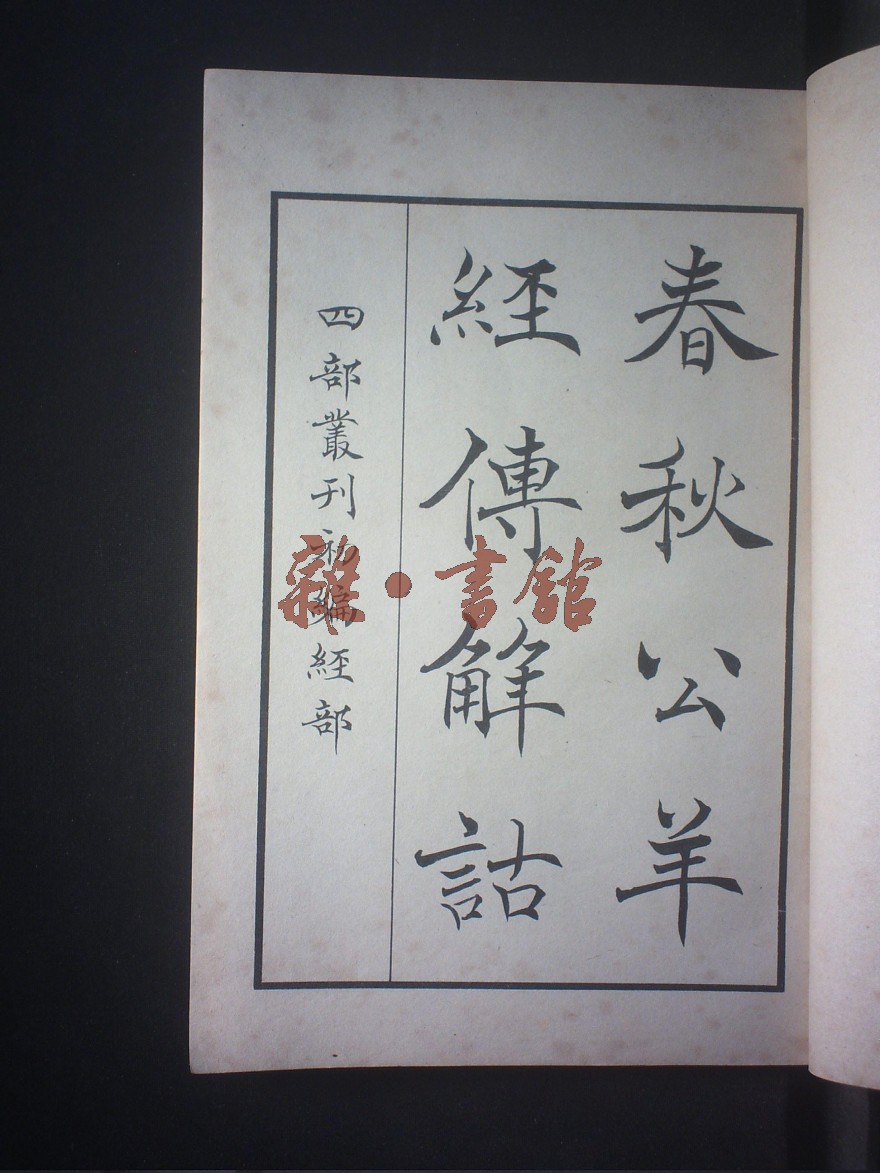 春秋公羊
經傳解詁
四部叢刊初編經部
雜·書館